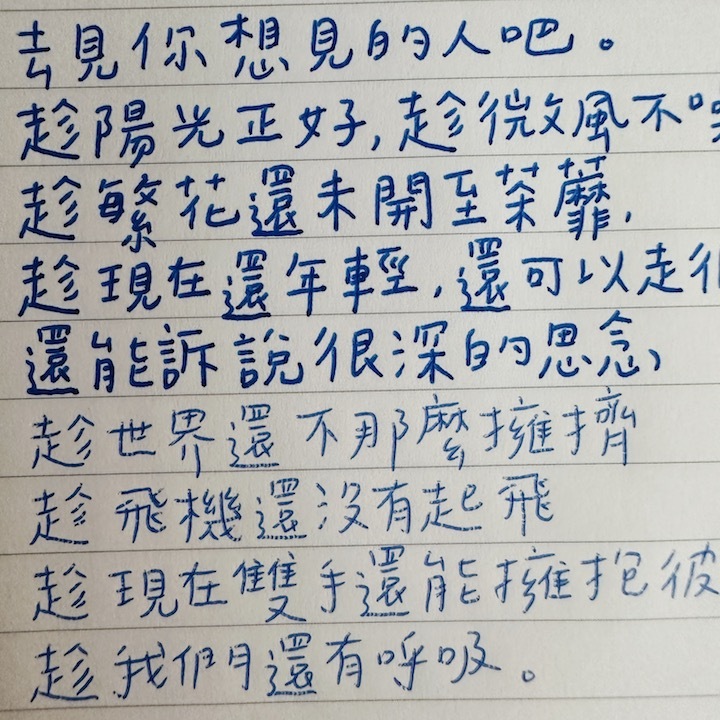 去見你想見的人吧。
趁陽光正好,趁微風不
趁繁花還未開至荼蘼,
趁現在還年輕,還可以走
還能訴說很深的思念,
趁世界還不那麼擁擠
趁飛機還沒有起飛
趁現在雙手還能擁抱彼
趁我們還有呼吸。